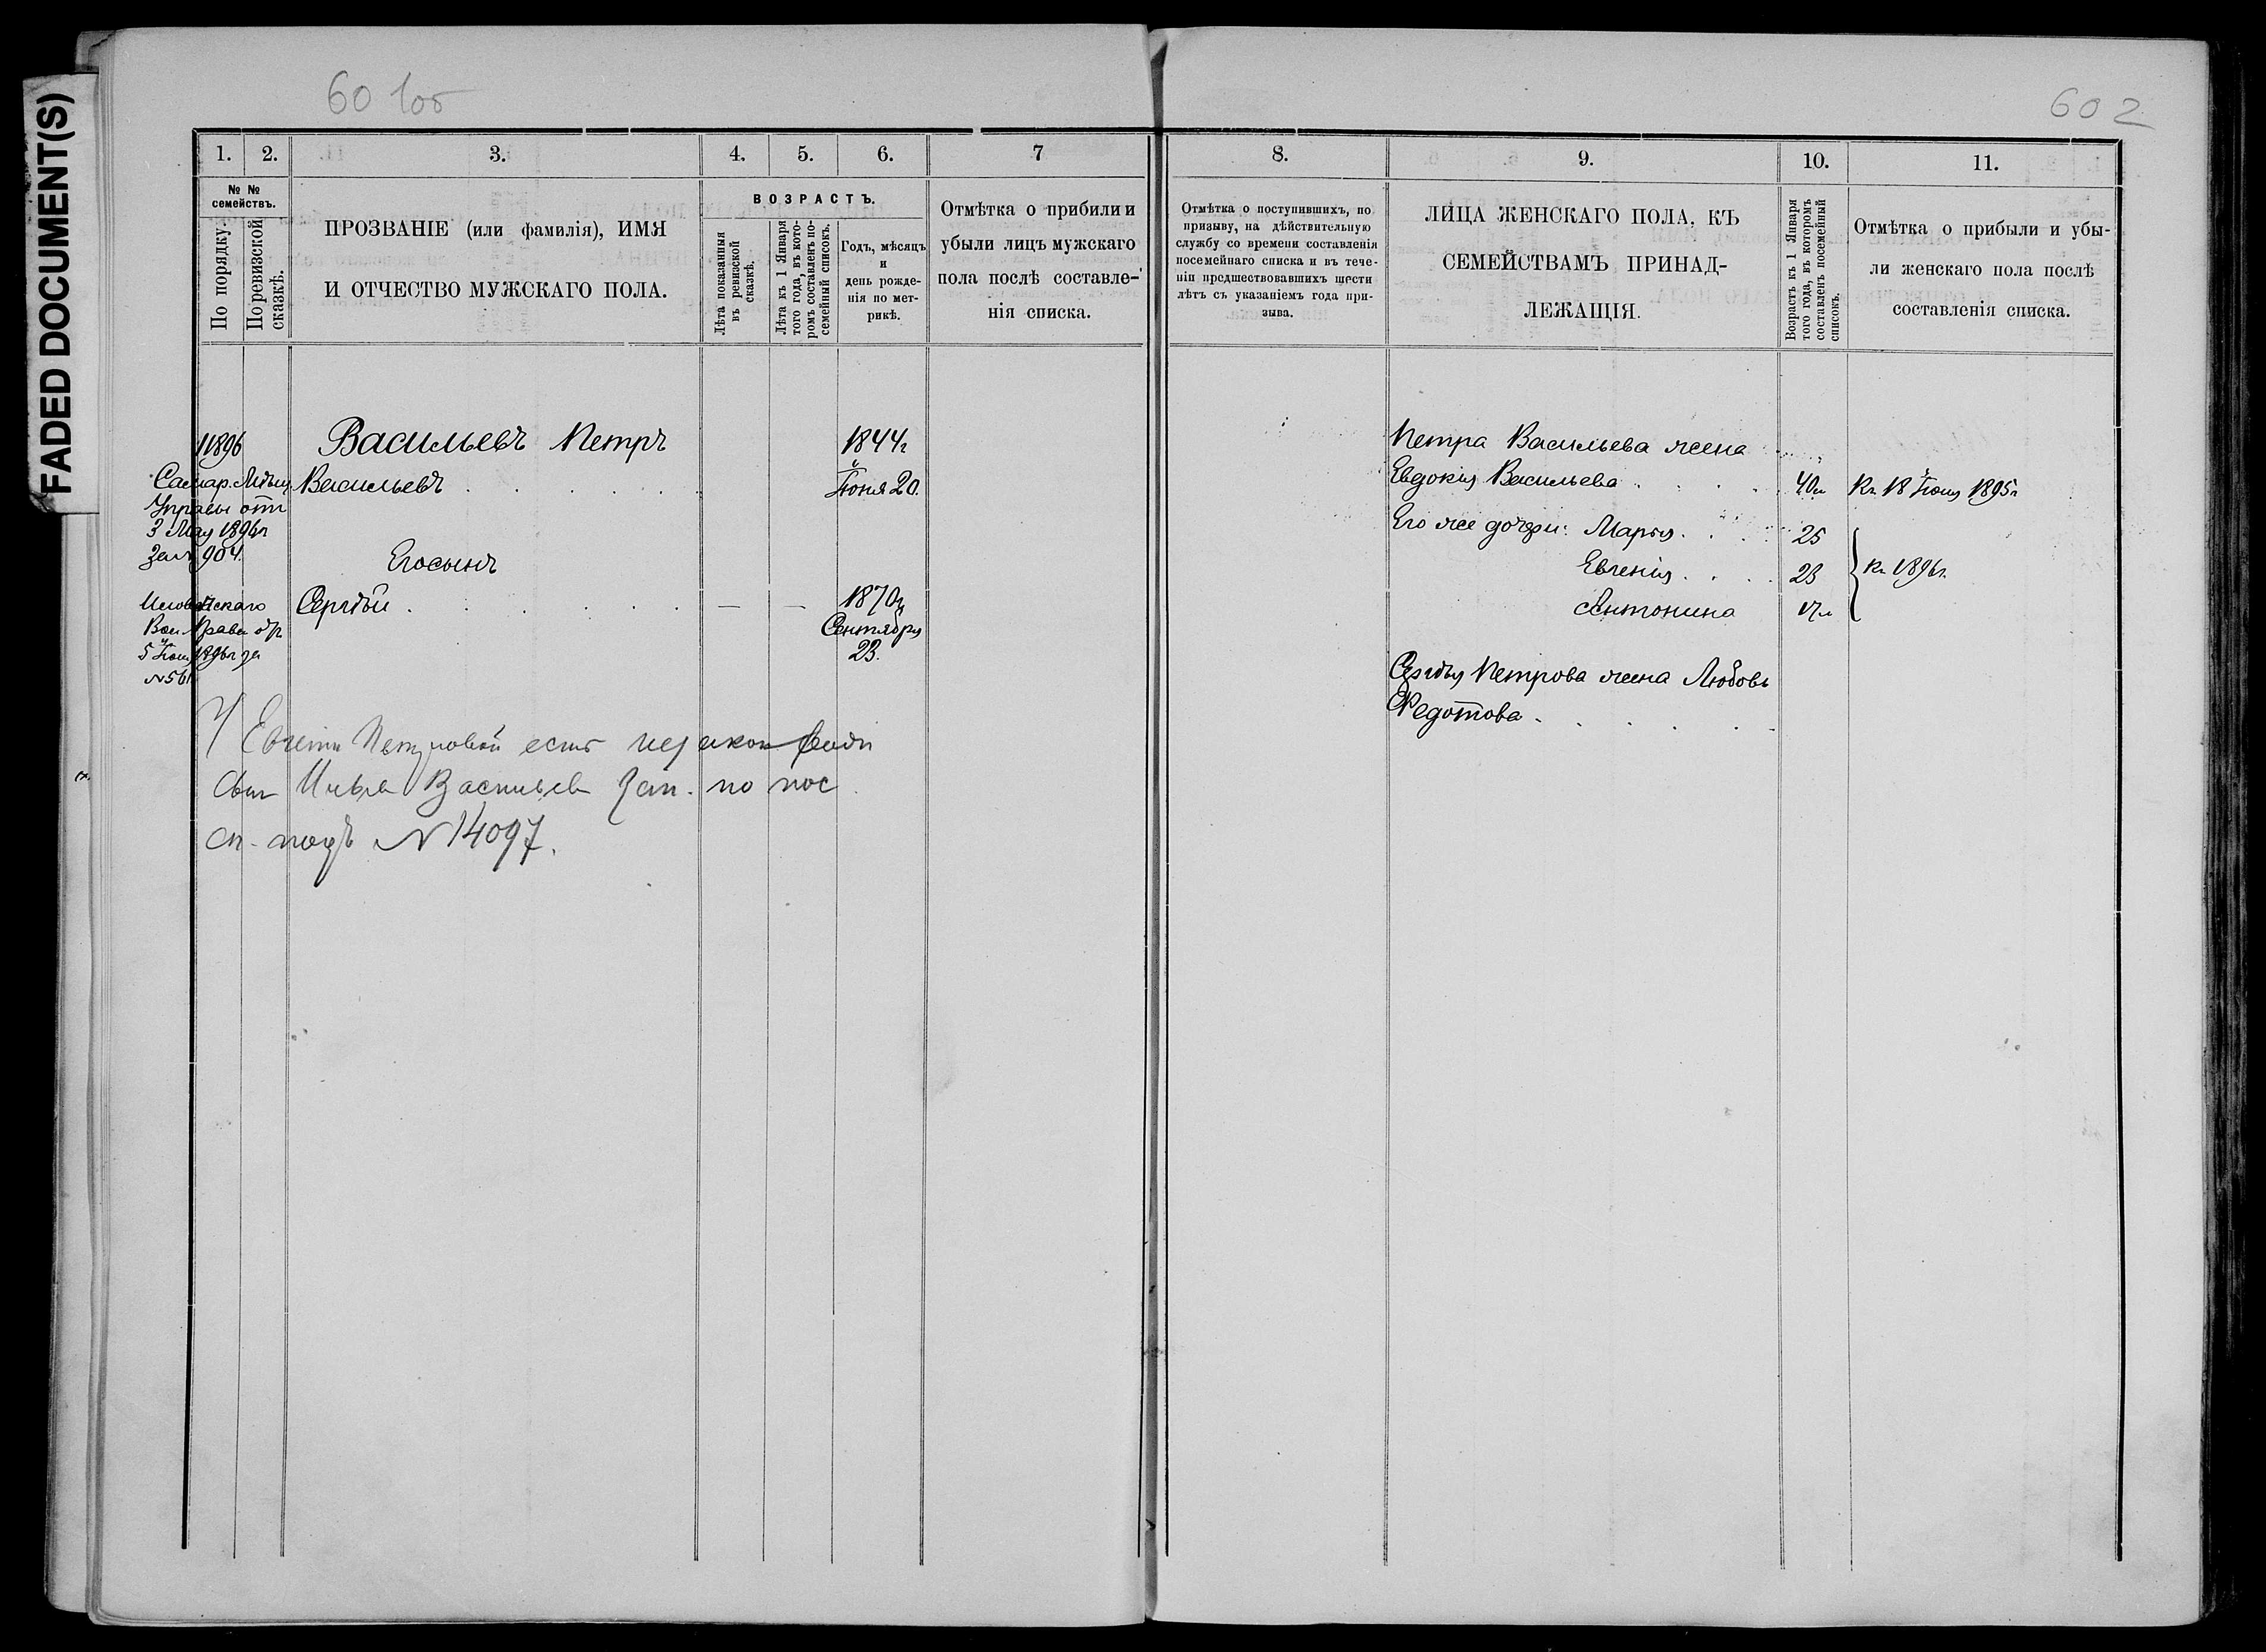 FADED DOCUMENT(S)
601об
602
1. 2. 3. 4. 5. 6. 7
№ № семействъ.
По порядку.
По ревизской сказкѣ.
ПРОЗВАНІЕ (или фамилія), ИМЯ
И ОТЧЕСТВО МУЖСКАГО ПОЛА.
ВОЗРАСТЪ.
Лѣта показанныя
въ ревизской
сказкѣ.
Лѣта къ 1 Января
того года, въ кото-
ромъ составленъ по-
семейный списокъ.
Годъ, мѣсяцъ
и
день рожде-
нія по мет-
рикѣ.
Отмѣтка о прибыли и
убыли лицъ мужскаго
пола послѣ составле-
нія списка.
11896
Самар. Мѣщ.
Управы отъ
3 Мая 1896г
за № 904.
Васильевъ Петръ
Васильевъ
1844г
Іюня 20.
Его сынъ
Сергѣй
— —
1870г
Сентября
23.
5 Іюня 1896г за
№ 561
У Евгеніи Петровой есть незакон
сынъ Илья Васильев Зап. по пос
сп. подъ № 14097.
8. 9. 10. 11.
Отмѣтка о поступившихъ, по
призыву, на дѣйствительную
службу со времени составленія
посемейнаго списка и въ тече-
ніи предшествовавшихъ шести
лѣтъ съ указаніемъ года при-
зыва.
ЛИЦА ЖЕНСКАГО ПОЛА, КЪ
СЕМЕЙСТВАМЪ ПРИНАД-
ЛЕЖАЩІЯ.
Возрастъ къ 1 Января
того года, въ которомъ
составленъ посемейный
списокъ.
Отмѣтка о прибыли и убы-
ли женскаго пола послѣ
составленія списка.
Петра Васильева жена
Евдокія Васильева 40л Къ 18 Іюня 1895г
Его же дочери: Марія 25
Евгенія 23 Къ 1896г.
Антонина 17л
Сергѣя Петрова жена Любовь
Федотова